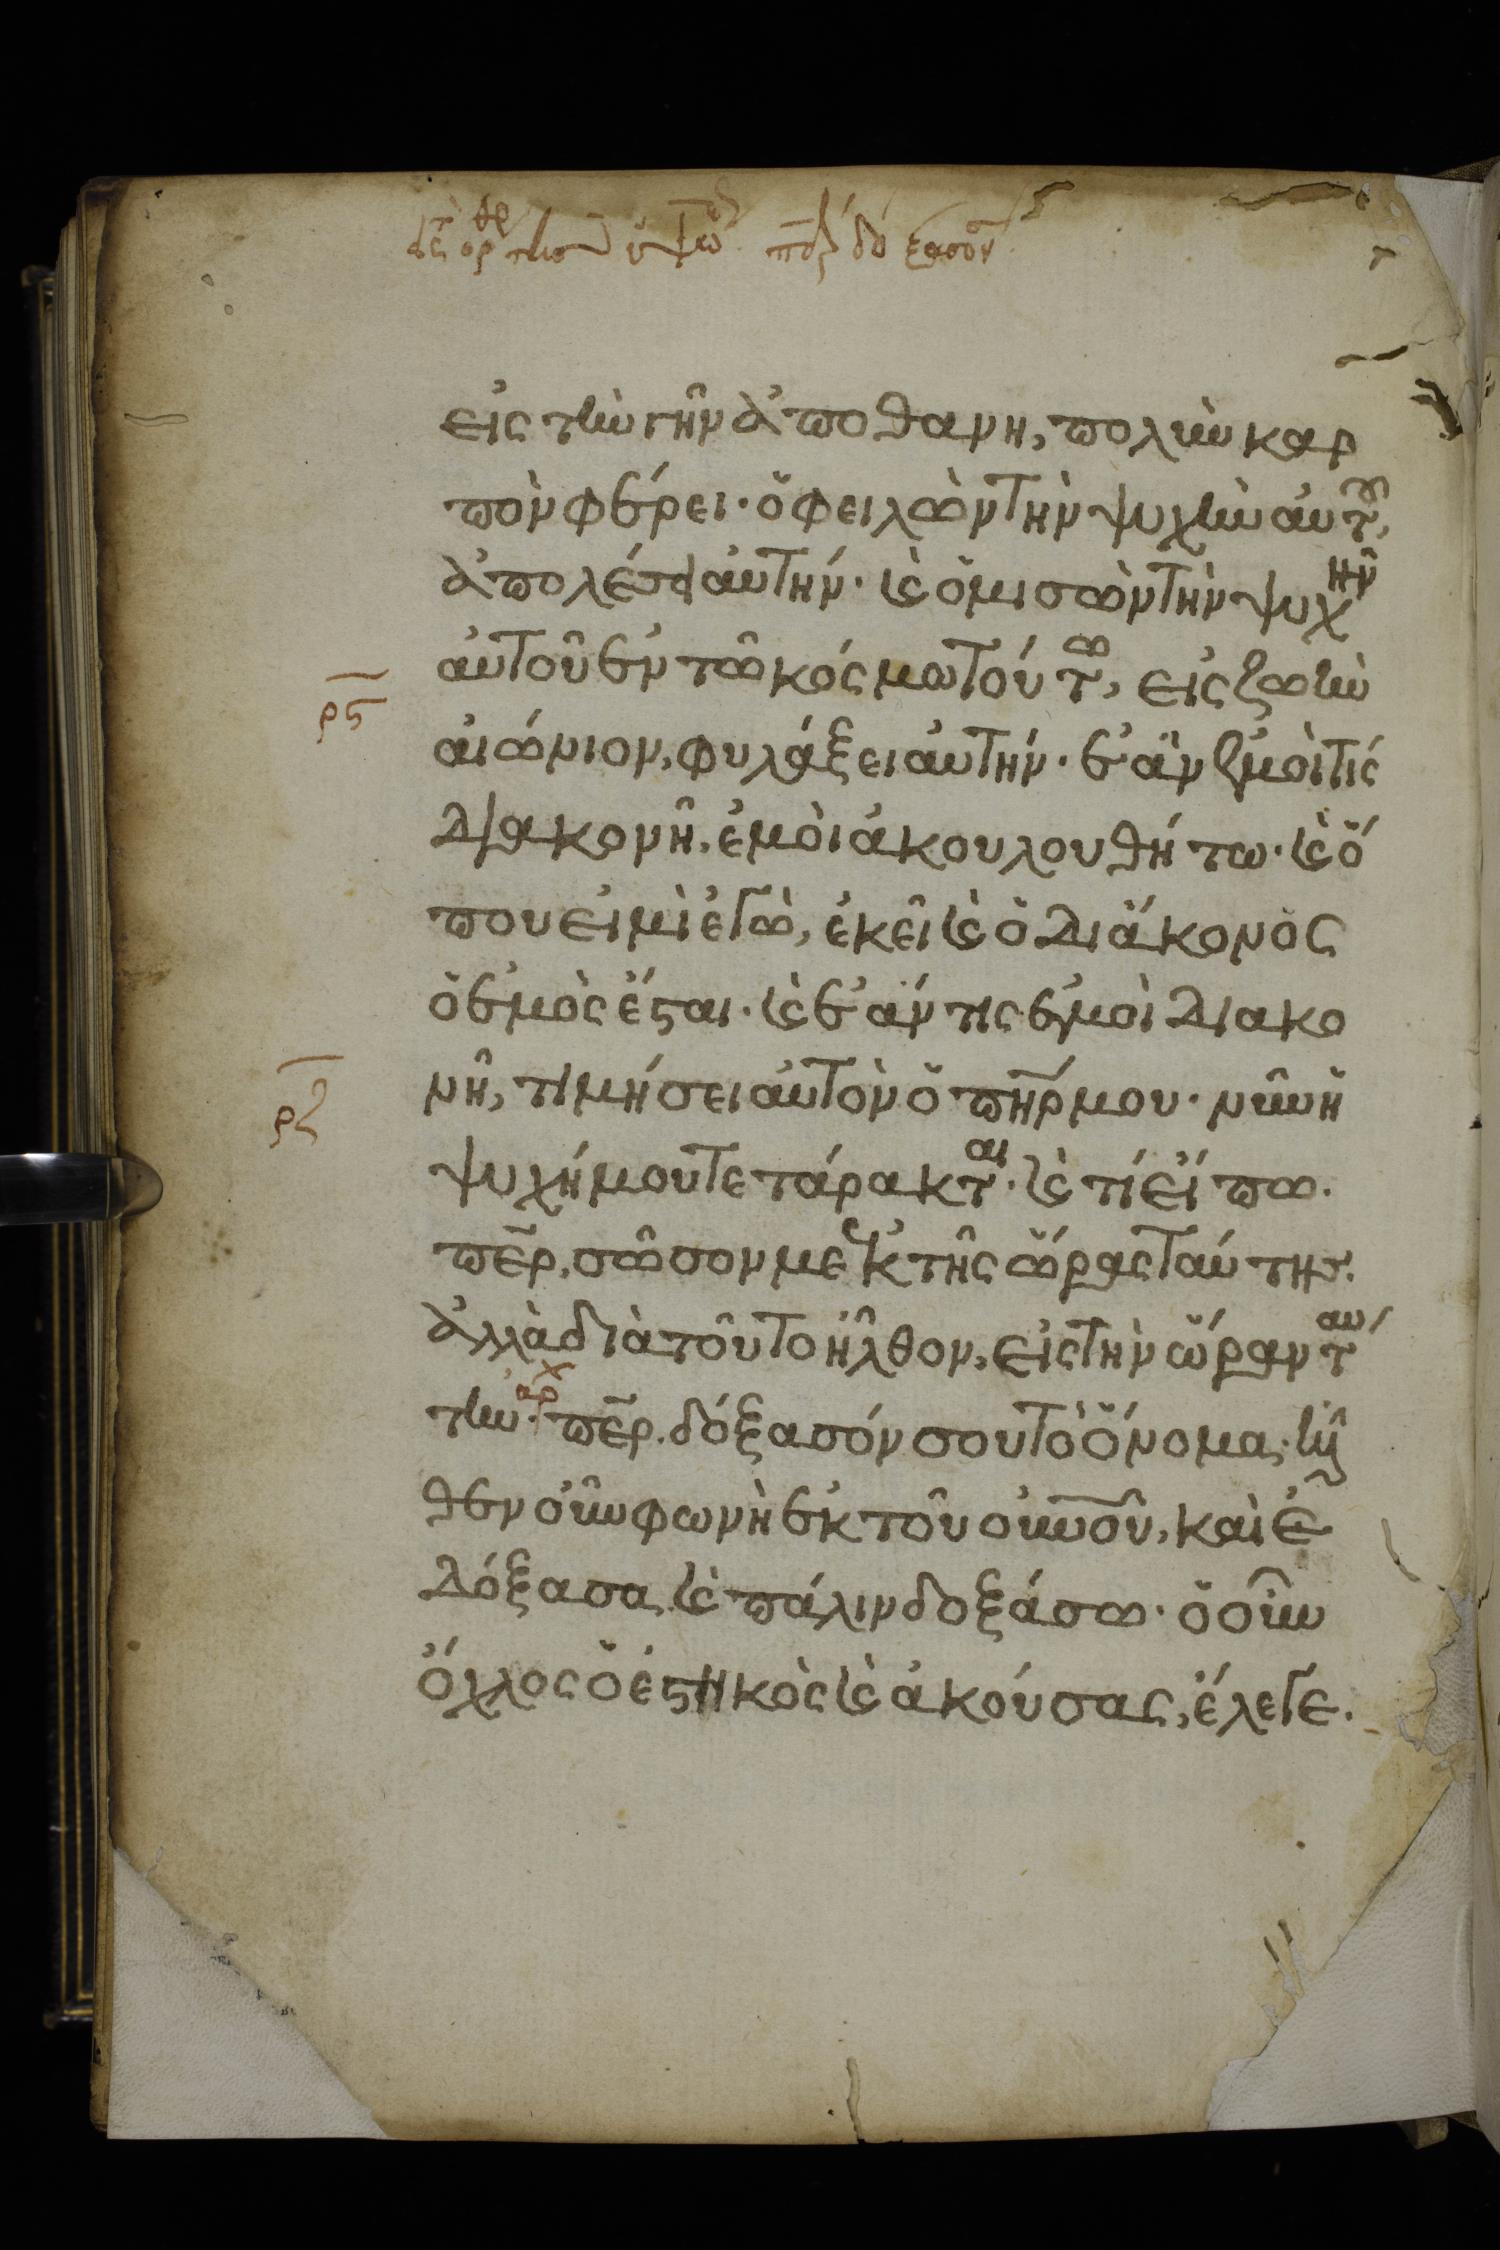 εἰς τὴν γῆν ἀποθανη, πολὺν καρ
πὸν φέρει. ὁ φειλῶν τὴν ψυχὴν αὐτοῦ,
ἀπολέσει αὐτήν. καὶ ὁ μισῶν τὴν ψυχὴν
αὐτοῦ ἐν τῶ κόσμω τούτω, εἰς ζωὴν
ρϛ
αἰώνιον, φυλάξει αὐτήν. ἐὰν ἐμοὶ τίς
διακονῆ. ἐμὸι ἀκουλουθήτω. καὶ ὅ
που εἰμὶ ἐγὼ, ἐκεῖ καὶ ὁ διάκονος
ὁ ἐμὸς ἔσται. καὶ ἐάν τις ἐμοὶ διακο
νῆ, τιμήσει αὐτὸν ὁ πηρ μου. νῦν ἡ
ρζ
ψυχή μου τετάρακται. καὶ τί εἴπω.
περ, σῶσον με ἐκ τῆς ὥρας ταύτης.
ἀλλὰ διὰ τοῦτο ἦλθον, εἰς τὴν ὥραν ταύ
την. αρχ περ. δόξασόν σου τὸ ὄνομα. ἦλ
θεν οὖν φωνὴ ἐκ τοῦ οὐνοῦ, καὶ ἐ
δόξασα καὶ πάλιν δοξάσω. ὁ οὖν
ὄχλος ὁ ἑστηκὸς καὶ ἀκούσας, ἔλεγε.